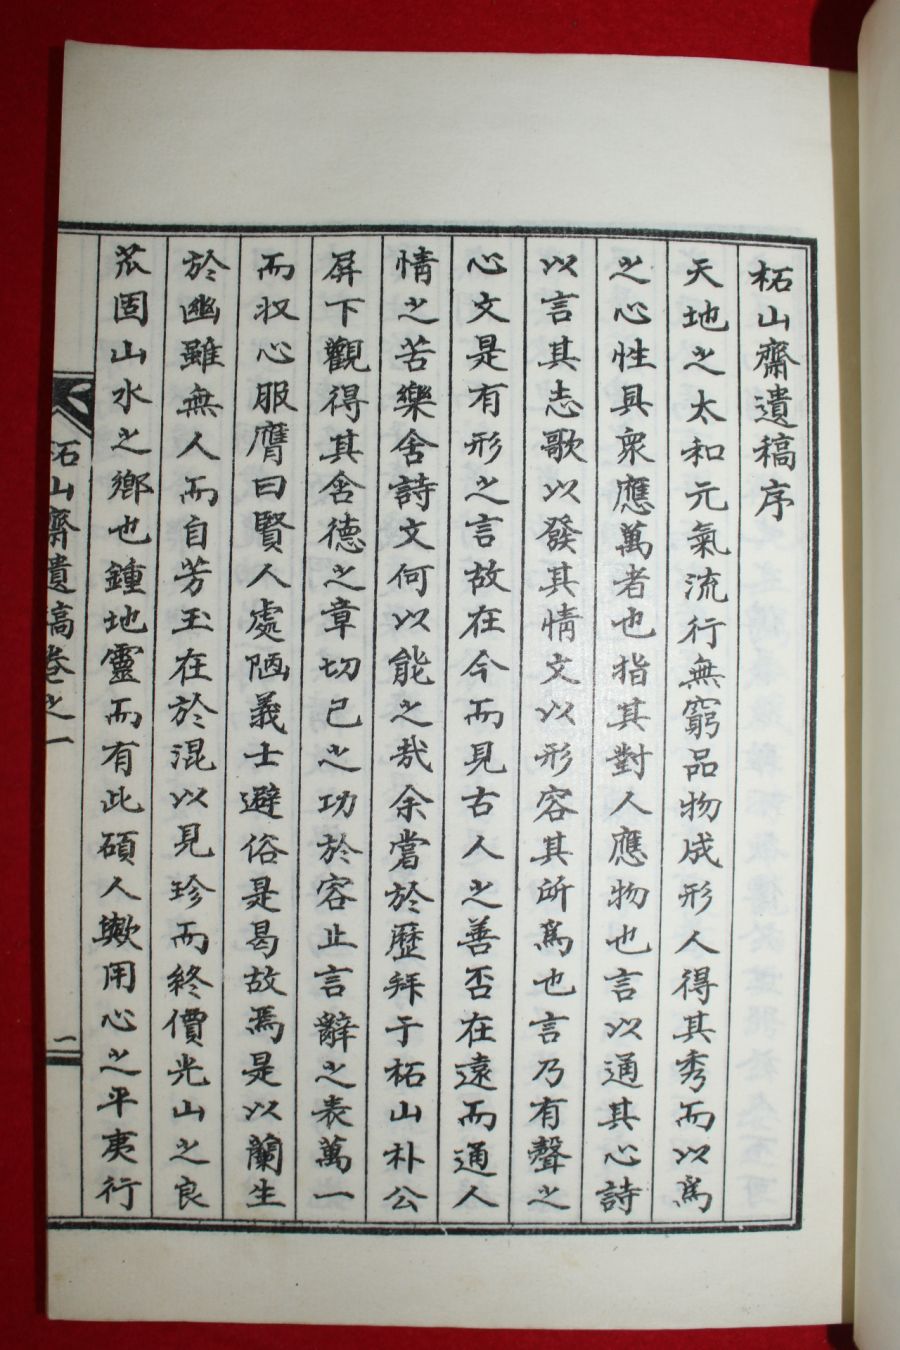 柘山齋遺稿序
天地之太和元氣流行無窮品物成形人得其秀而以爲
之心性具衆應萬者也指其對人應物也言以通其心詩
以言其志歌以發其情文以形容其所爲也言乃有聲之
心文是有形之言故在今而見古人之善否在遠而通人
情之苦樂舍詩文何以能之哉余嘗於歷拜于柘山朴公
屛下觀得其含德之章切已之功於容止言辭之表萬一
而収心服膺曰賢人處陋義士避俗是曷故焉是以蘭生
於幽雖無人而自芳玉在於混以見珍而終價光山之良
苽固山水之鄕也鍾地靈而有此碩人歟用心之平夷行
柘山齋遺稿卷之一
一